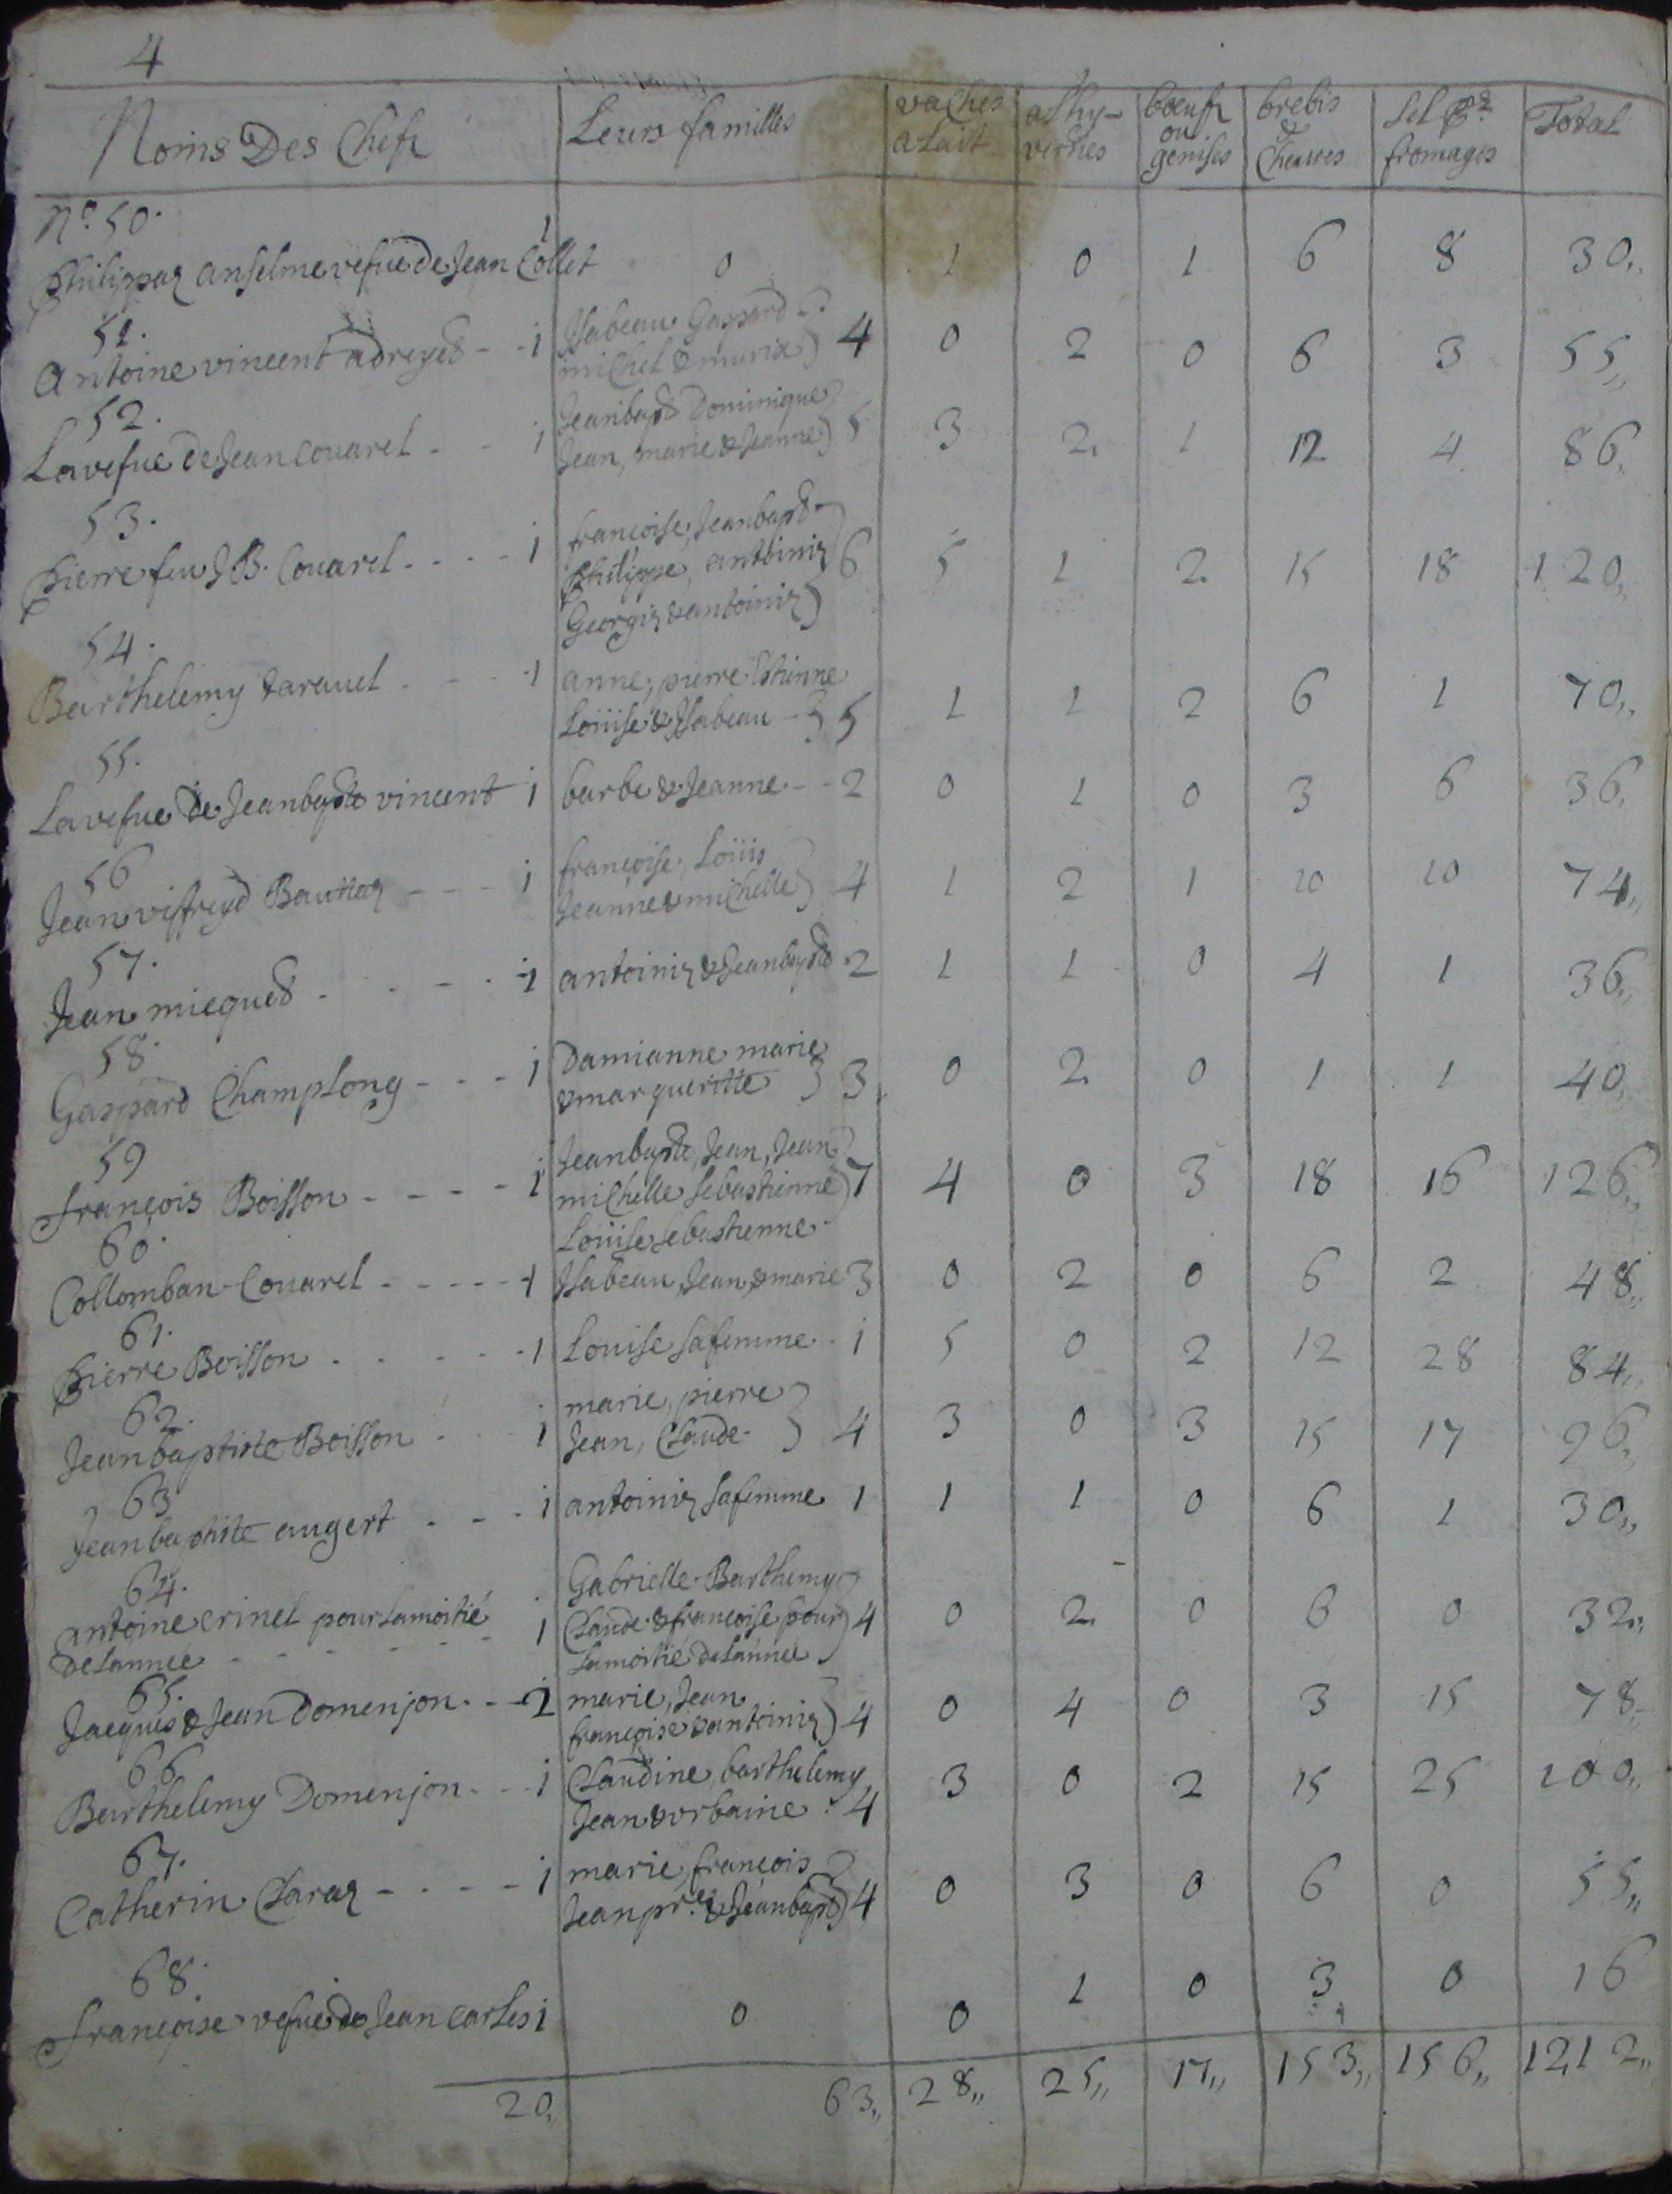 4
Noms Des Chefs | Leurs familles | vaches a Lait | a lhy-vernes | bœufs ou genises | brebis & Cheuvres | Sel pr fromages | Total
No. 50.
Philippaz anselme vefue de Jean Collet 1 | 0 | 1 | 0 | 1 | 6 | 8 | 30,,
51.
Antoine vincent adreyed - - i | Isabeau Gaspard
michel & muria } 4 | 0 | 2 | 0 | 6 | 3 | 55,,
52.
La vefue de Jean Couarel - - i | Jeanbapt Dominique
Jean, marie & Jeanne } 5 | 3 | 2 | 1 | 12 | 4 | 86,,
53.
Pierre feu J B. Couarel - - - - i | francoise, Jeanbapt
Philippe, anthoiniz
Georgiz & antoiniz } 6 | 5 | 1 | 2 | 15 | 18 | 120,,
54.
Barthelemy Jaravel - - - 1 | anne, pierre Estienne
Loüise & Isabeau - } 5 | 1 | 1 | 2 | 6 | 1 | 70,,
55.
La vefue de Jeanbapte vincent i | barbe & Jeanne - - 2 | 0 | 1 | 0 | 3 | 6 | 36,,
56
Jean viffreyd Bauttaz - - - i | francoise, Loüis
Jeanne & michelle } 4 | 1 | 2 | 1 | 10 | 10 | 74,,
57.
Jean micqued - - - - 1 | antoiniz & Jeanbapte 2 | 1 | 1 | 0 | 4 | 1 | 36,,
58.
Gaspard Champlong - - - i | Damianne marie
& margueritte } 3 | 0 | 2 | 0 | 1 | 1 | 40,,
59
françois Boisson - - - - i | Jeanbapte, Jean, Jean
michelle sebastienne
Loüise sebastienne } 7 | 4 | 0 | 3 | 18 | 16 | 126,,
60.
Collomban Couarel - - - - - 1 | Isabeau, Jean, & marie 3 | 0 | 2 | 0 | 6 | 2 | 48,,
61.
Pierre Boisson - - - - - 1 | Louise sa femme - i | 5 | 0 | 2 | 12 | 28 | 84,,
62.
Jeanbaptiste Boisson - - i | marie, pierre
Jean, Claude } 4 | 3 | 0 | 3 | 15 | 17 | 96,,
63
Jeanbaptiste augert - - - i | antoiniz sa femme 1 | 1 | 1 | 0 | 6 | 1 | 30,,
64.
antoine crinel pour la moitié
de lannee - - - - - - 1 | Gabrielle Barthemy
Claude & francoise pour
la moitié de lannee } 4 | 0 | 2 | 0 | 6 | 0 | 32,,
65.
Jacques & Jean Domenjon - - 2 | marie, Jean
francoise & antoiniz } 4 | 0 | 4 | 0 | 3 | 15 | 78,,
66
Barthelemy Domenjon - - i | Claudine, barthelemy
Jean & urbaine 4 | 3 | 0 | 2 | 15 | 25 | 100,,
67.
Catherin Claraz - - - - i | marie, françois
Jean prre & Jeanbapt } 4 | 0 | 3 | 0 | 6 | 0 | 55,,
68.
françoise vefue de Jean Carles i | 0 | 0 | 1 | 0 | 3 | 0 | 16
20,, | 63,, | 28,, | 25,, | 17,, | 153,, | 156,, | 1212,,